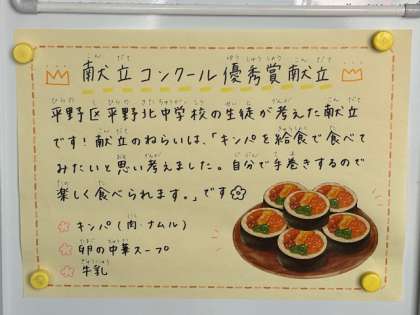 献立コンクール優秀賞献立
平野区平野北中学校の生徒が考えた献立
です！献立のねらいは、「キンパを給食で食べて
みたいと思い考えました。自分で手巻きするので
楽しく食べられます。」です
キンパ(肉・ナムル)
卵の中華スープ
牛乳